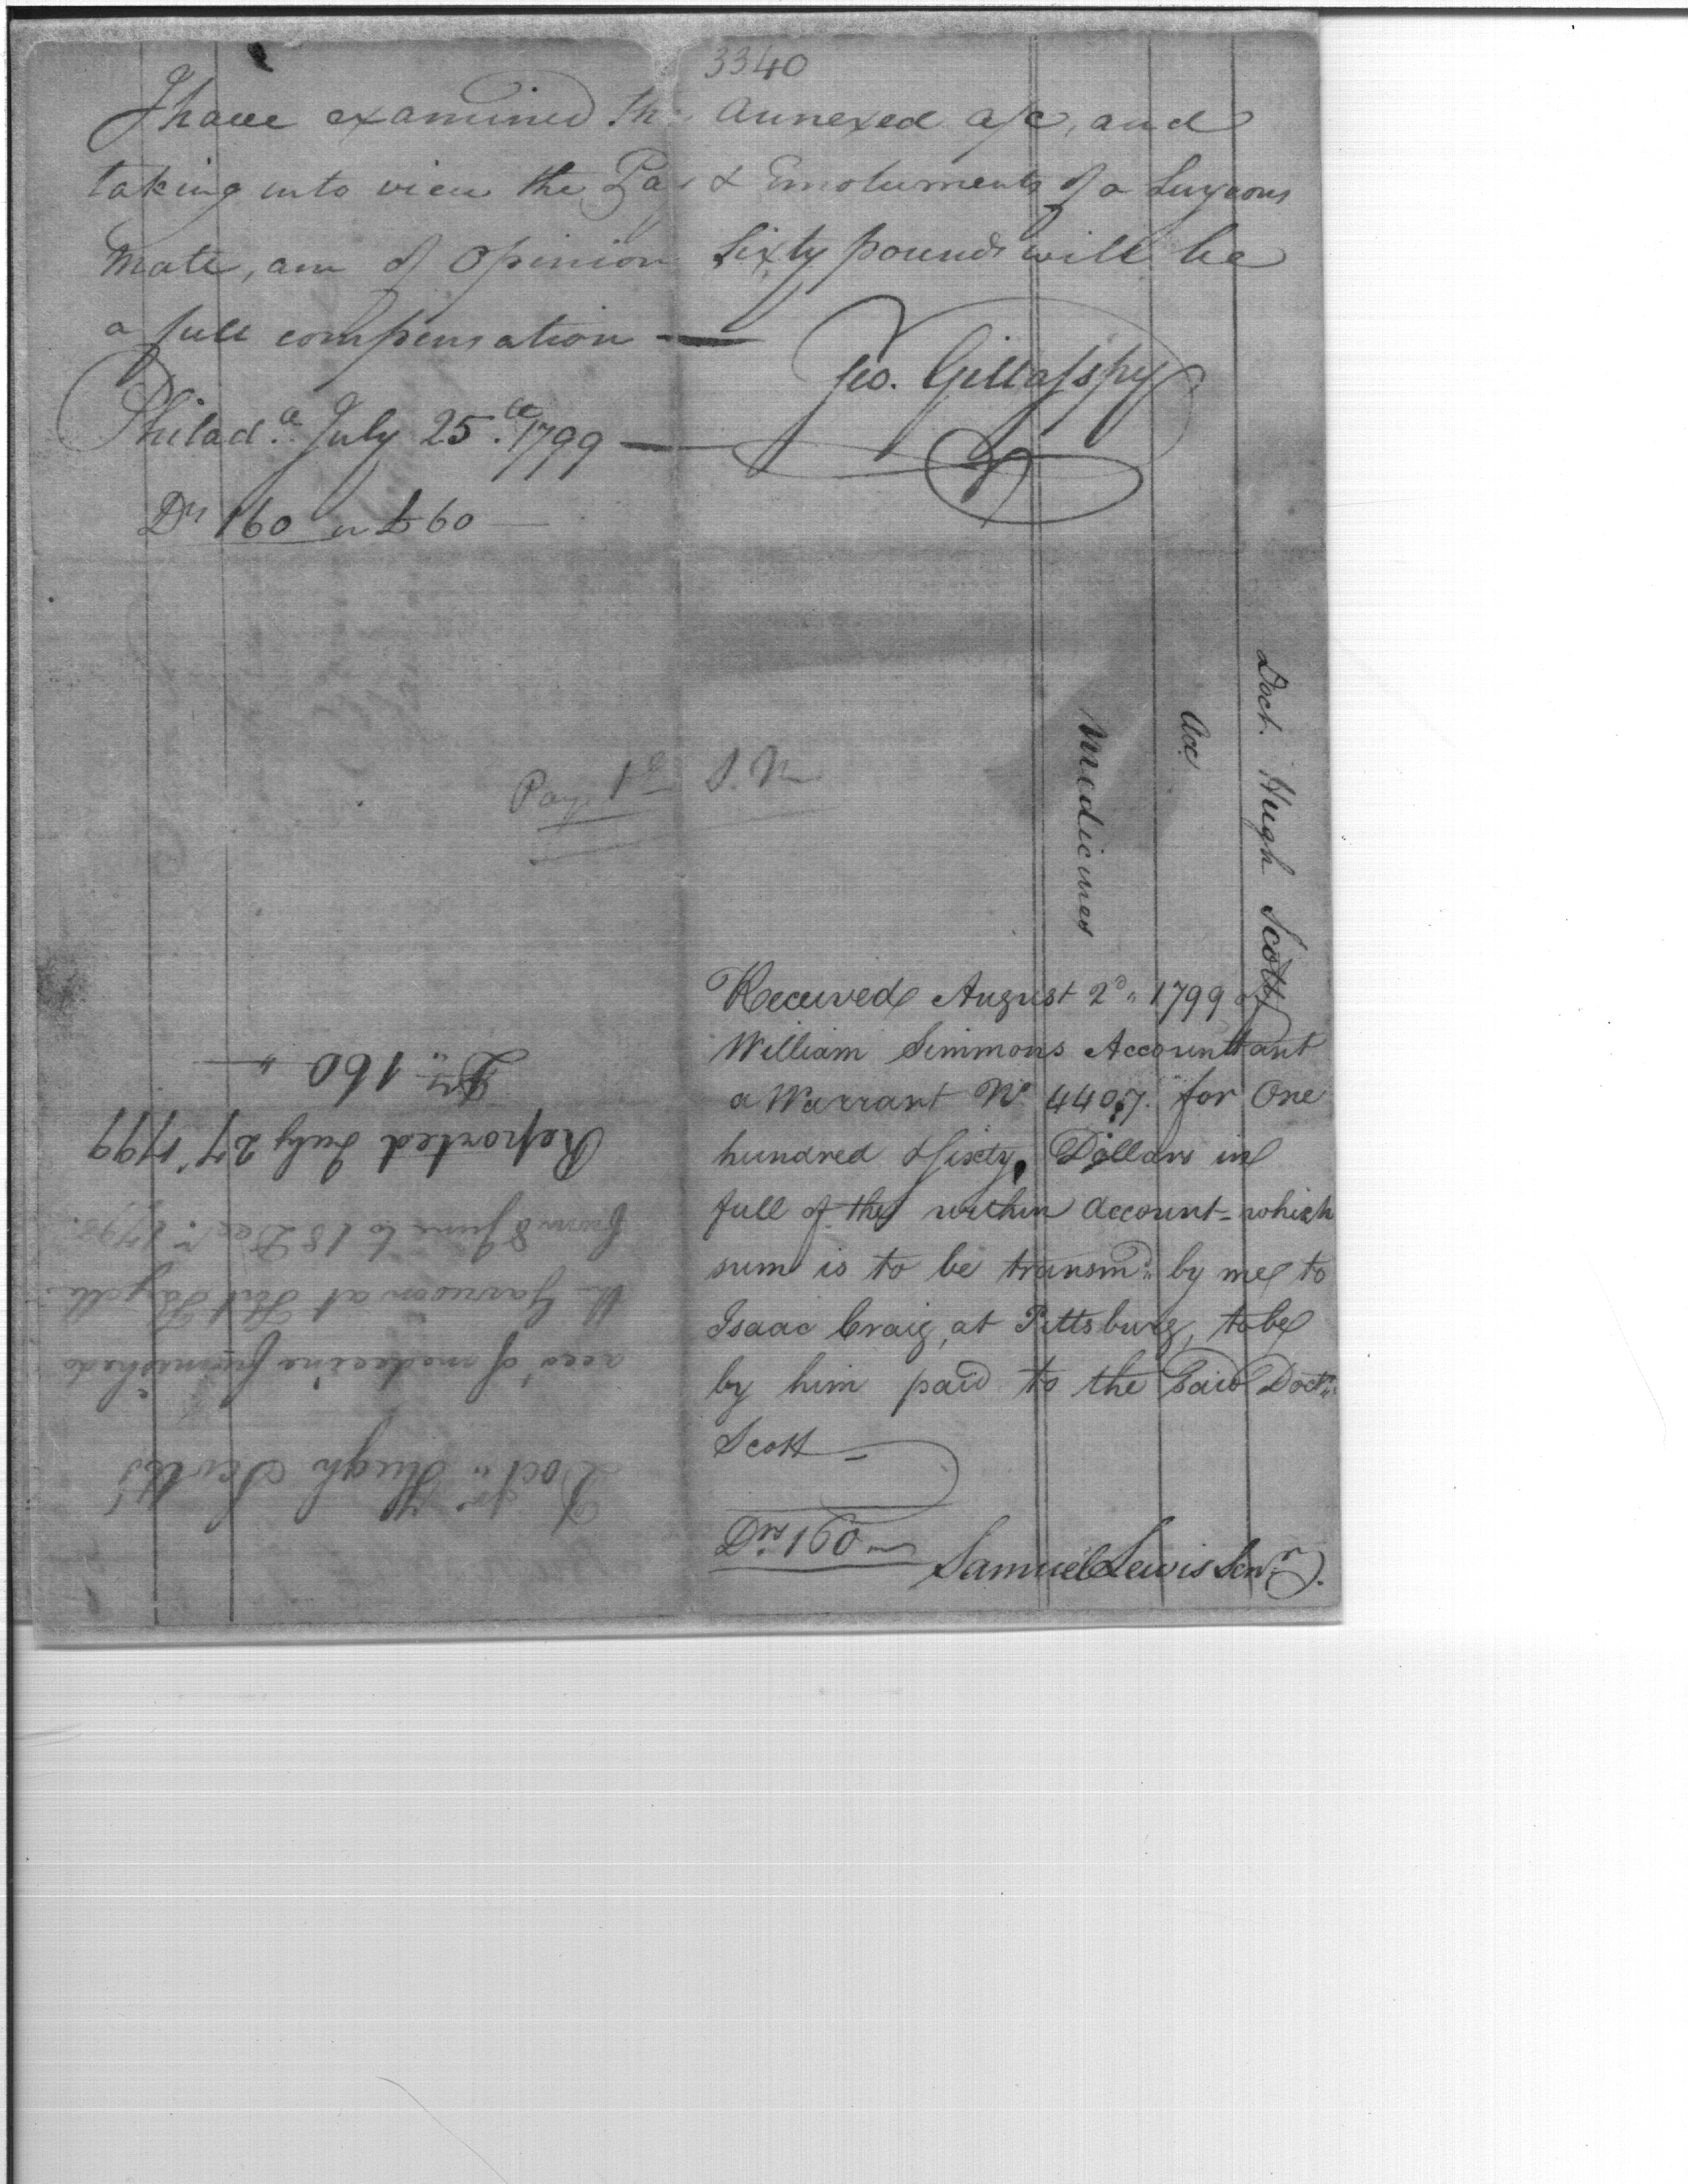 3340
I have examined the annexed a/c, and
taking into view the Pay & Emoluments of a Surgeons
Mate, am of Opinion Sixty pounds will be
a full compensation —
Geo. Gillasspy
Philad.a July 25.th 1799 —
Drs 160 or £60 —
Pay
Doct. Hugh Scott
Acc
Medicines
Received August 2d 1799 of
William Simmons Accountant
a Warrant No 4407. for One
hundred & sixty Dollars in
full of the within account - which
sum is to be transm.d by me to
Isaac Craig, at Pittsburg, to be
by him paid to the said Doctr
Scott —
Drs 160 —
Samuel Lewis Senr.
Doctr Hugh Scott's
acco.t of medecine furnished
the Garrison at Fort Fayette
from 8 June to 18 Decr. 1798.
Reported July 27 1799
Drs 160 "—